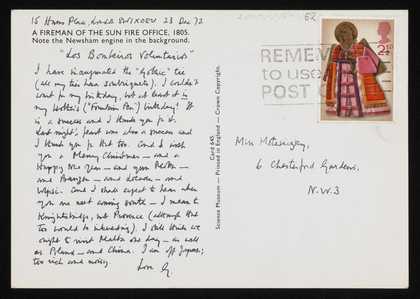 15 Hans Place, London SW1X0EW 23 Dec 72
A FIREMAN OF THE SUN FIRE OFFICE, 1805.
Note the Newsham engine in the background.
"Los Bomberos Voluntarios"
I have inaugurated the "Gothic" tie
(all my ties have soubriquets). I couldn't
wait for my birthday, but at least it is
my birthday!
is a success and I thank you for it.
Last night's feast was also a success and
I thank you for that too. And I wish
you a Merry Christmas — and a
Happy New Year — and
and — and — and
And I shall expect to hear when
you are next coming south — I mean to
Knightsbridge, not Provence (although that
too would be interesting). I still think we
ought to visit Malta one day — as well
as Poland — and China. I am off Japan:
too rich and noisy.
Love
Card 645
Science Museum — Printed in England — Crown Copyright.
62
REMEM
to use
POST
2½P
Miss
6 Chesterford Gardens,
N.W.3